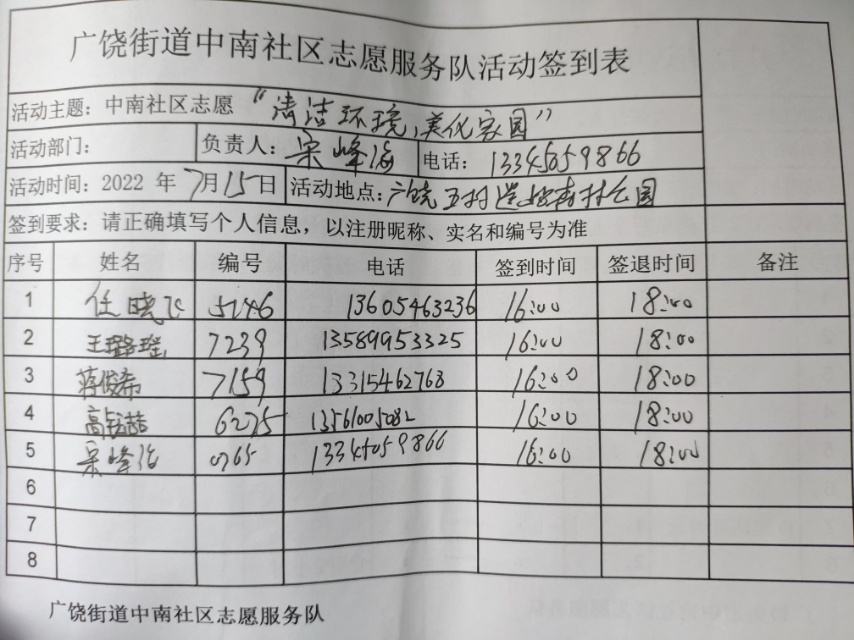 广饶街道中南社区志愿服务队活动签到表
活动主题：中南社区志愿 “清洁环境，美化家园”
活动部门： 负责人：宋峰浩 电话：13345059866
活动时间：2022 年 7月15日 活动地点：广饶 五村 公园
签到要求：请正确填写个人信息，以注册昵称、实名和编号为准
序号 姓名 编号 电话 签到时间 签退时间 备注
1 任晓飞 5246 13605463236 16:00 18:00
2 王璐瑶 7239 13589953325 16:00 18:00
3 蒋俊希 7159 13315462768 16:00 18:00
4 高 6275 13561005082 16:00 18:00
5 宋峰浩 0765 13345059866 16:00 18:00
6
7
8
广饶街道中南社区志愿服务队